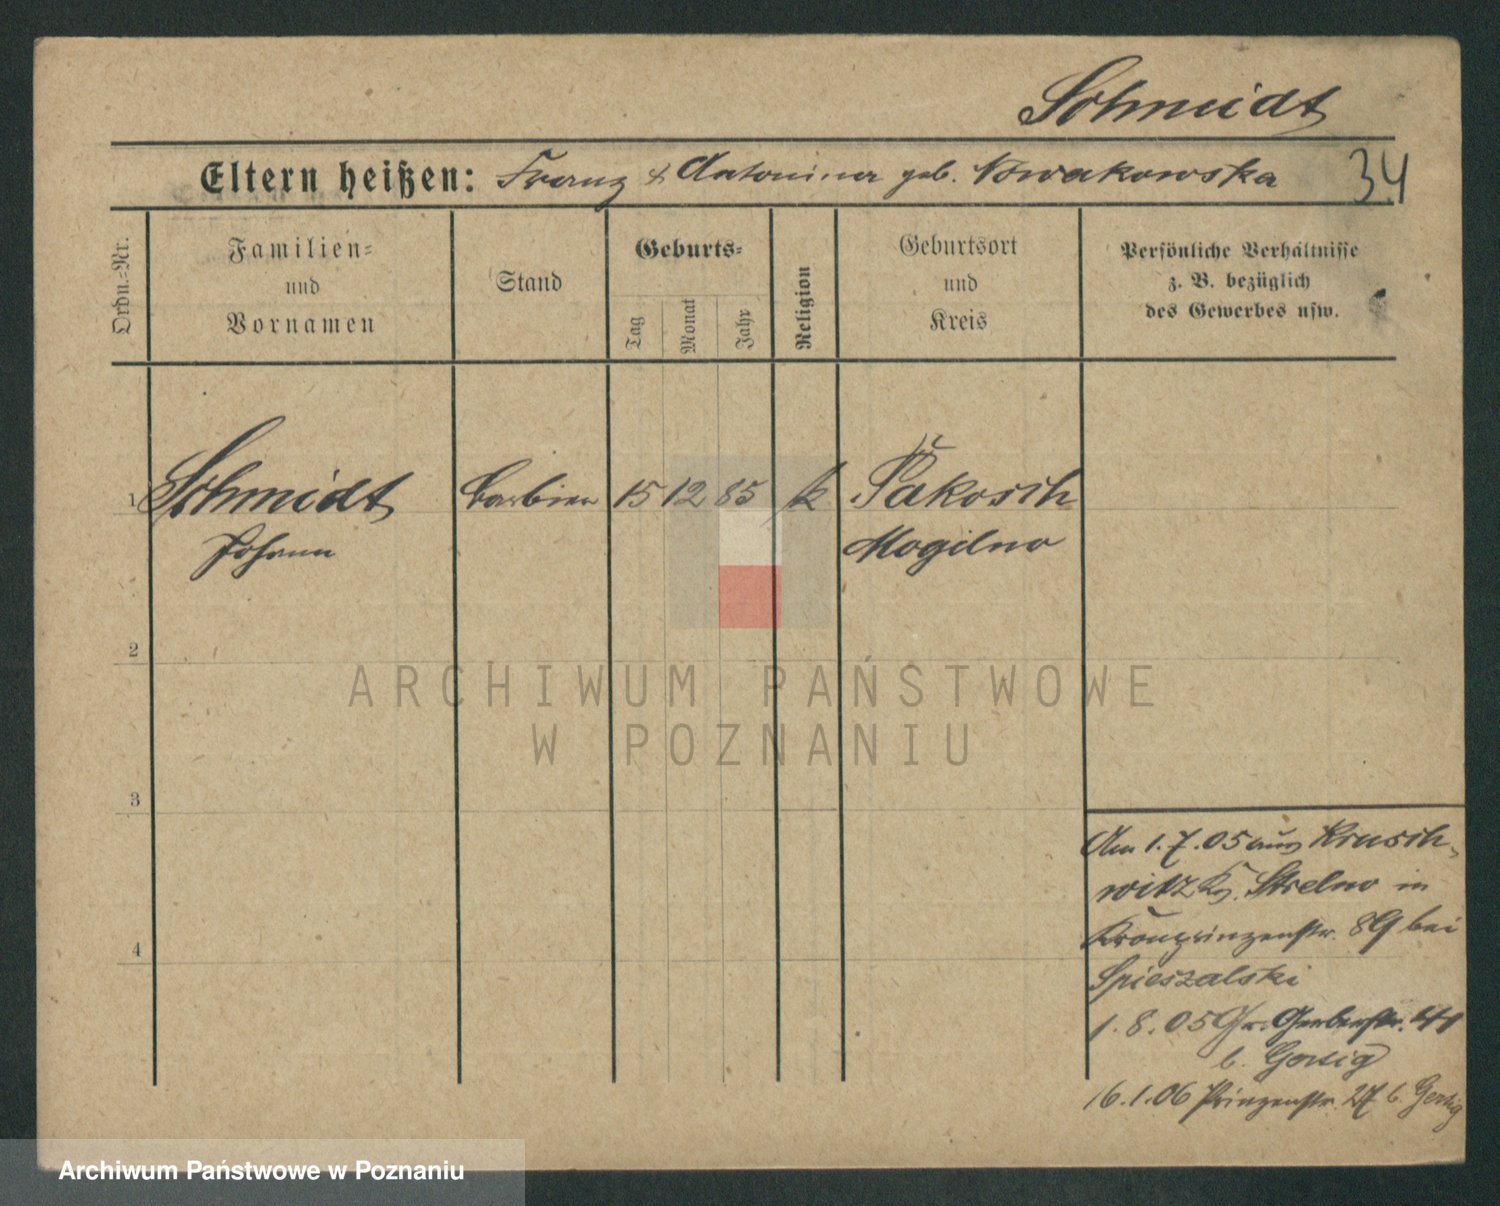 Schmidt
Eltern heißen: Franz & Antonina geb. Nowakowska 34
Ordn.-Nr.
Familien-
und
Vornamen
Stand
Geburts-
Tag
Monat
Jahr
Religion
Geburtsort
und
Kreis
Persönliche Verhältnisse
z. B. bezüglich
des Gewerbes usw.
1 Schmidt Barbier 15 12 85 k Pakosch
Johann Mogilno
2
3
4
Am 1.7.05 aus Krusch-
witz Kr. Strelno in
Kronprinzenstr. 89 bei
Spieszalski
1.8.05 Gr. Gerberstr.
b. Gersig
16.1.06 Prinzenstr. 27 b. Gersig
ARCHIWUM PAŃSTWOWE
W POZNANIU
Archiwum Państwowe w Poznaniu